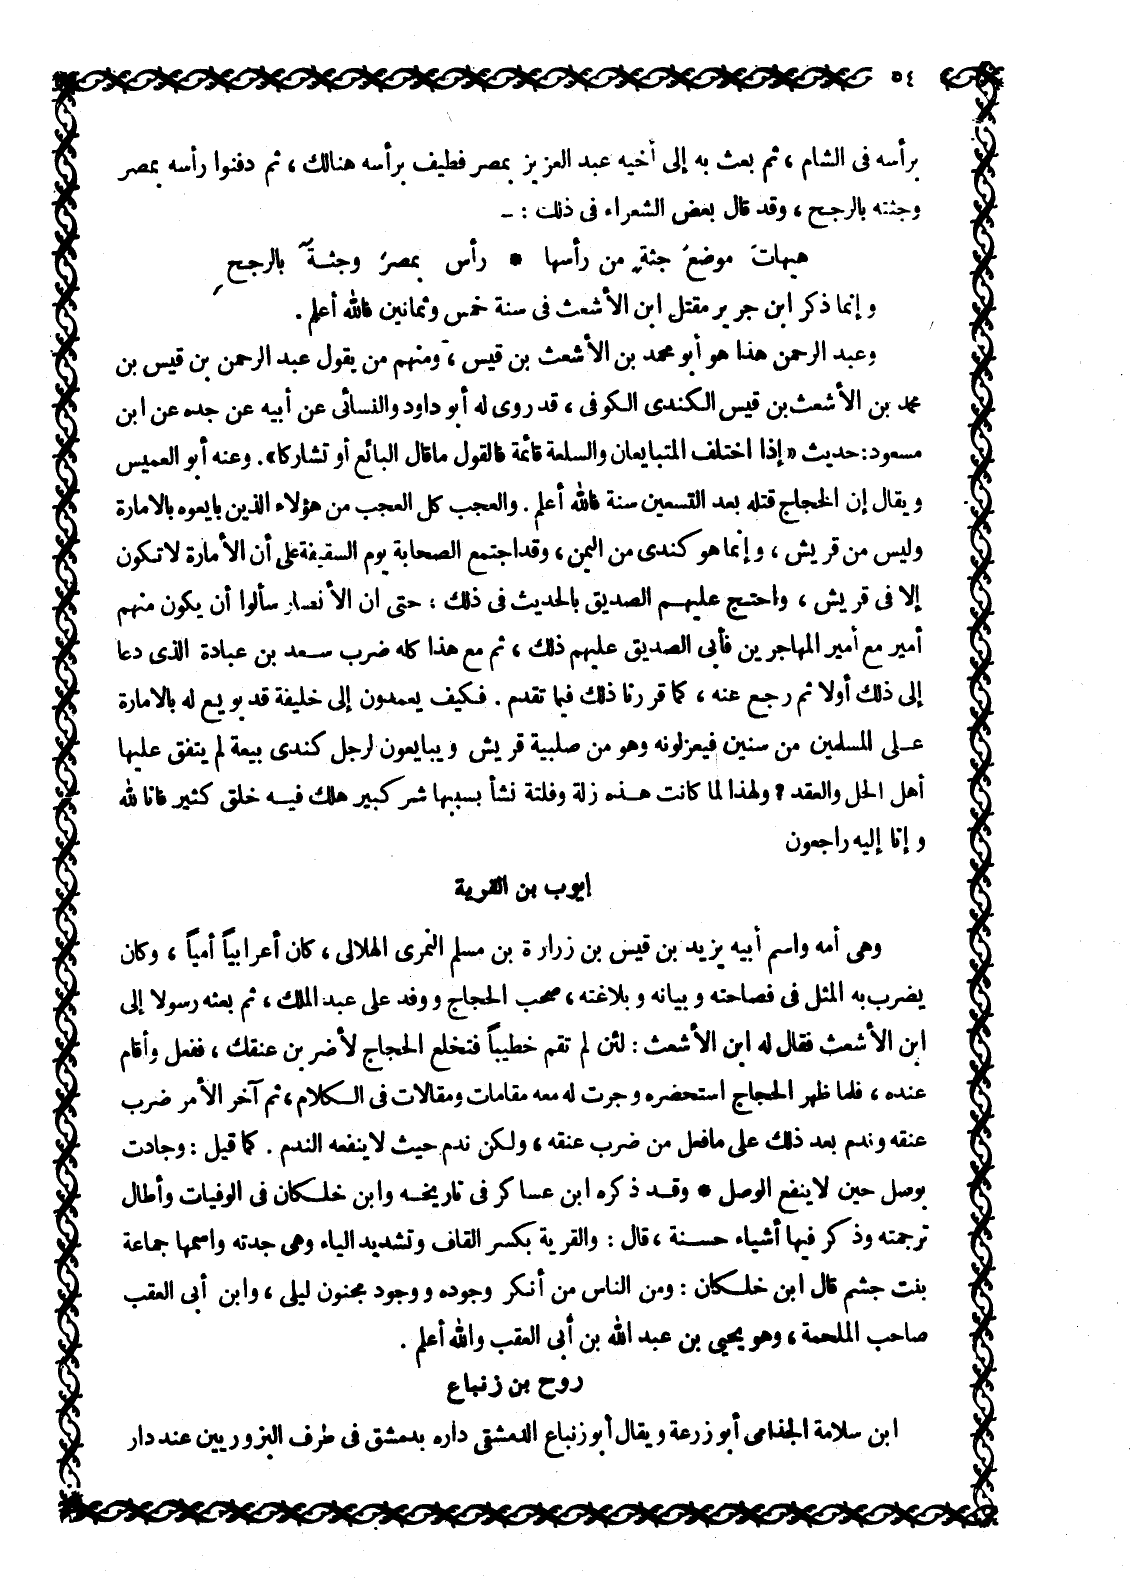 ٥٤
برأسه فى الشام ، ثم بعث به إلى أخيه عبد العزيز بمصر فطيف برأسه هنالك ، ثم دفنوا رأسه بمصر
وجثته بالرجح ، وقد قال بعض الشعراء فى ذلك : ـ
هيهاتَ موضعُ جثةٍ من رأسها * رأس بمصرُ وجثةٌ بالرجحِ
وإنما ذكر ابن جرير مقتل ابن الأشعث فى سنة خمس وثمانين فالله أعلم .
وعبد الرحمن هذا هو أبو محمد بن الأشعث بن قيس ، ومنهم من يقول عبد الرحمن بن قيس بن
محمد بن الأشعث بن قيس الكندى الكوفى ، قد روى له أبو داود والنسائى عن أبيه عن جده عن ابن
مسعود: حديث « إذا اختلف المتبايعان والسلعة قائمة فالقول ماقال البائع أو تشاركا». وعنه أبو العميس
ويقال إن الحجاج قتله بعد التسعين سنة فالله أعلم . والعجب كل العجب من هؤلاء الذين بايعوه بالامارة
وليس من قريش ، وإنما هو كندى من اليمن ، وقد اجتمع الصحابة يوم السقيفة على أن الأمارة لا تكون
إلا فى قريش ، واحتج عليهم الصديق بالحديث فى ذلك : حتى ان الأنصار سألوا أن يكون منهم
أمير مع أمير المهاجرين فأبى الصديق عليهم ذلك ، ثم مع هذا كله ضرب سعد بن عبادة الذى دعا
إلى ذلك أولا ثم رجع عنه ، كما قررنا ذلك فيما تقدم . فكيف يعمدون إلى خليفة قد بويع له بالامارة
على المسلمين من سنين فيعزلونه وهو من صلبية قريش ويبايعون لرجل كندى بيعة لم يتفق عليها
أهل الحل والعقد ? ولهذا لما كانت هذه زلة وفلتة نشأ بسببها شر كبير هلك فيه خلق كثير فانا لله
وإنا إليه راجعون
إيوب بن القرية
وهى أمه واسم أبيه يزيد بن قيس بن زرارة بن مسلم النمرى الهلالى ، كان أعرابياً أمياً ، وكان
يضرب به المثل فى فصاحته وبيانه وبلاغته ، صحب الحجاج ووفد على عبد الملك ، ثم بعثه رسولا إلى
ابن الأشعث فقال له ابن الأشعث : لئن لم تقم خطيباً فتخلع الحجاج لأضربن عنقك ، ففعل وأقام
عنده ، فلما ظهر الحجاج استحضره وجرت له معه مقامات ومقالات فى الكلام ، ثم آخر الأمر ضرب
عنقه وندم بعد ذلك على مافعل من ضرب عنقه ، ولكن ندم حيث لاينفعه الندم . كما قيل : وجادت
بوصل حين لاينفع الوصل * وقد ذكره ابن عساكر فى تاريخه وابن خلكان فى الوفيات وأطال
ترجمته وذكر فيها أشياء حسنة ، قال : والقرية بكسر القاف وتشديد الياء وهى جدته واسمها جماعة
بنت جشم قال ابن خلكان : ومن الناس من أنكر وجوده ووجود مجنون ليلى ، وابن أبى العقب
صاحب الملحمة ، وهو يحيى بن عبد الله بن أبى العقب والله أعلم .
روح بن زنباع
ابن سلامة الجذامى أبو زرعة ويقال أبو زنباع الدمشقى داره بدمشق فى طرف البزوريين عند دار